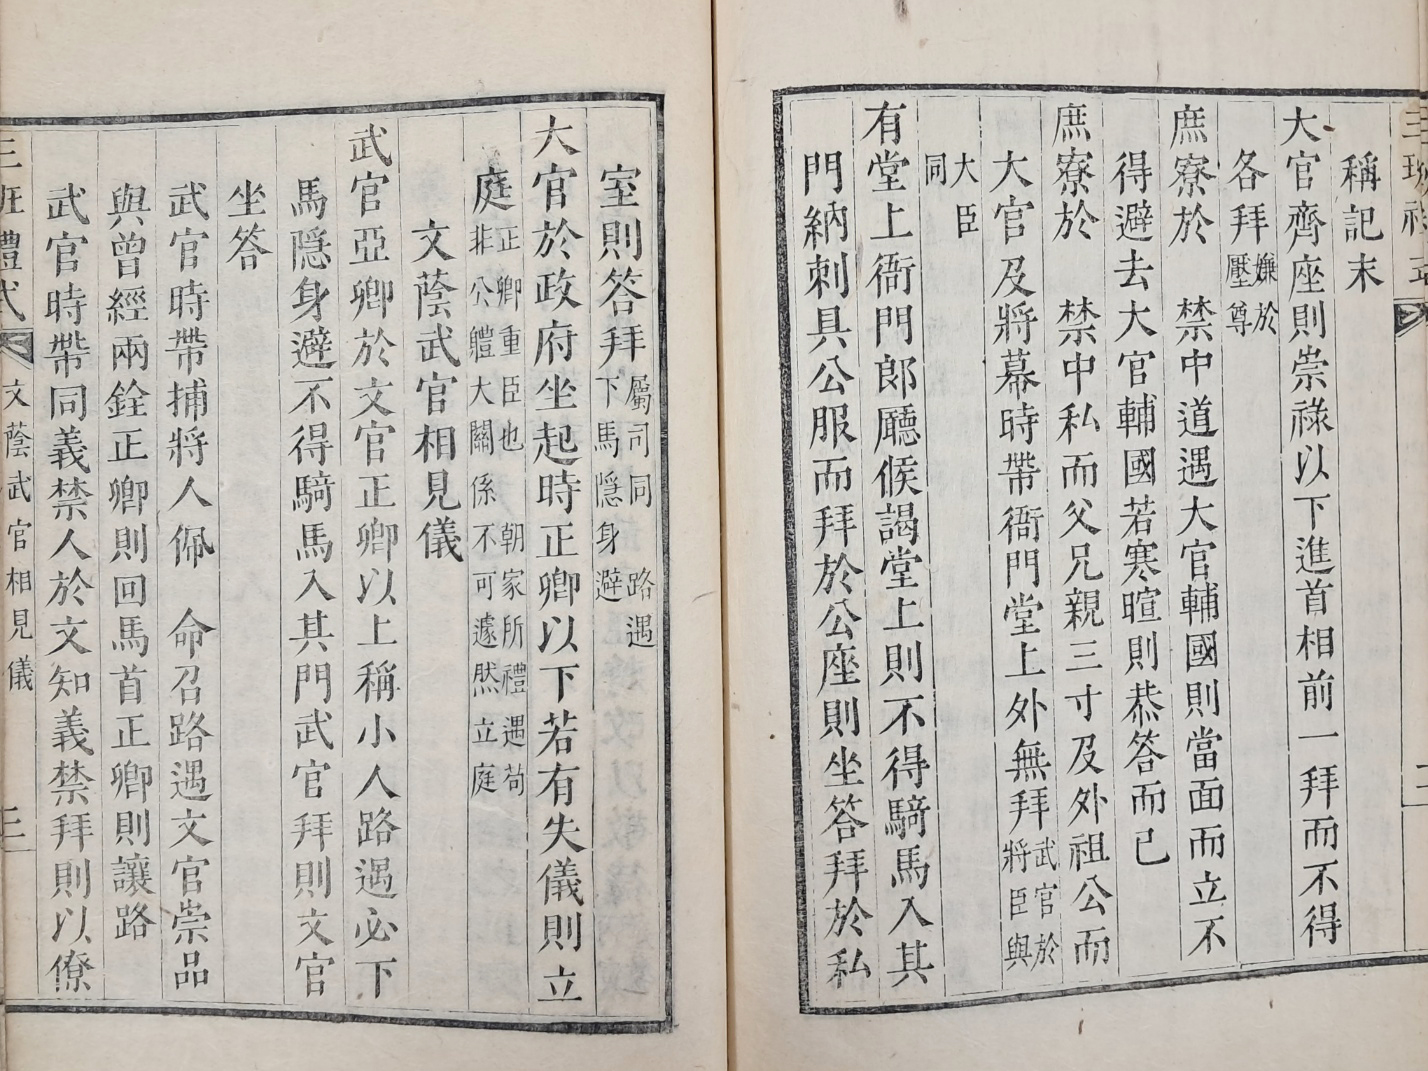 稱記末
大官齊座則崇祿以下進首相前一拜而不得
各拜嫌於壓尊
庶寮於 禁中道遇大官輔國則當面而立不
得避去大官輔國若寒暄則恭答而已
庶寮於 禁中私而父兄親三寸及外祖公而
大官及將幕時帶衙門堂上外無拜武官於將臣與
大臣同
有堂上衙門郎廳候謁堂上則不得騎馬入其
門納刺具公服而拜於公座則坐答拜於私
室則答拜屬司同 路遇下馬隱身避
大官於政府坐起時正卿以下若有失儀則立
庭正卿重臣也 朝家所禮遇苟非公軆大關係不可遽然立庭
文蔭武官相見儀
武官亞卿於文官正卿以上稱小人路遇必下
馬隱身避不得騎馬入其門武官拜則文官
坐答
武官時帶捕將人佩 命召路遇文官崇品
與曾經兩銓正卿則回馬首正卿則讓路
武官時帶同義禁人於文知義禁拜則以僚
三班禮式 文蔭武官相見儀 三